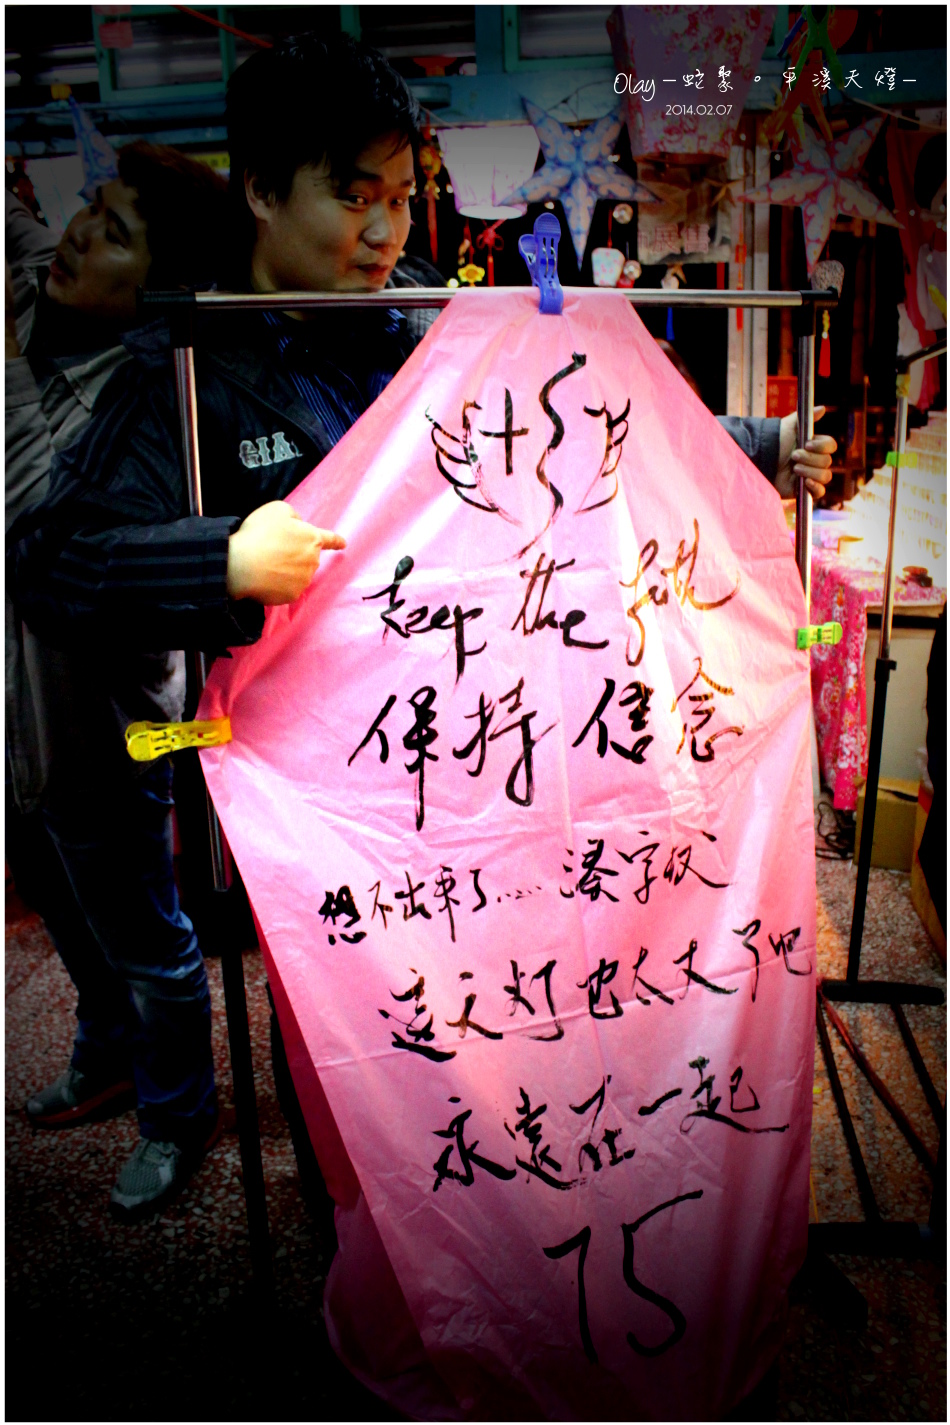 Olay－蛇聚。平溪天燈－
2014.02.07
展售
GIA
keep the 
保持信念
想不出來了..... 湊字數
這天灯也太大了吧
永遠在一起
75